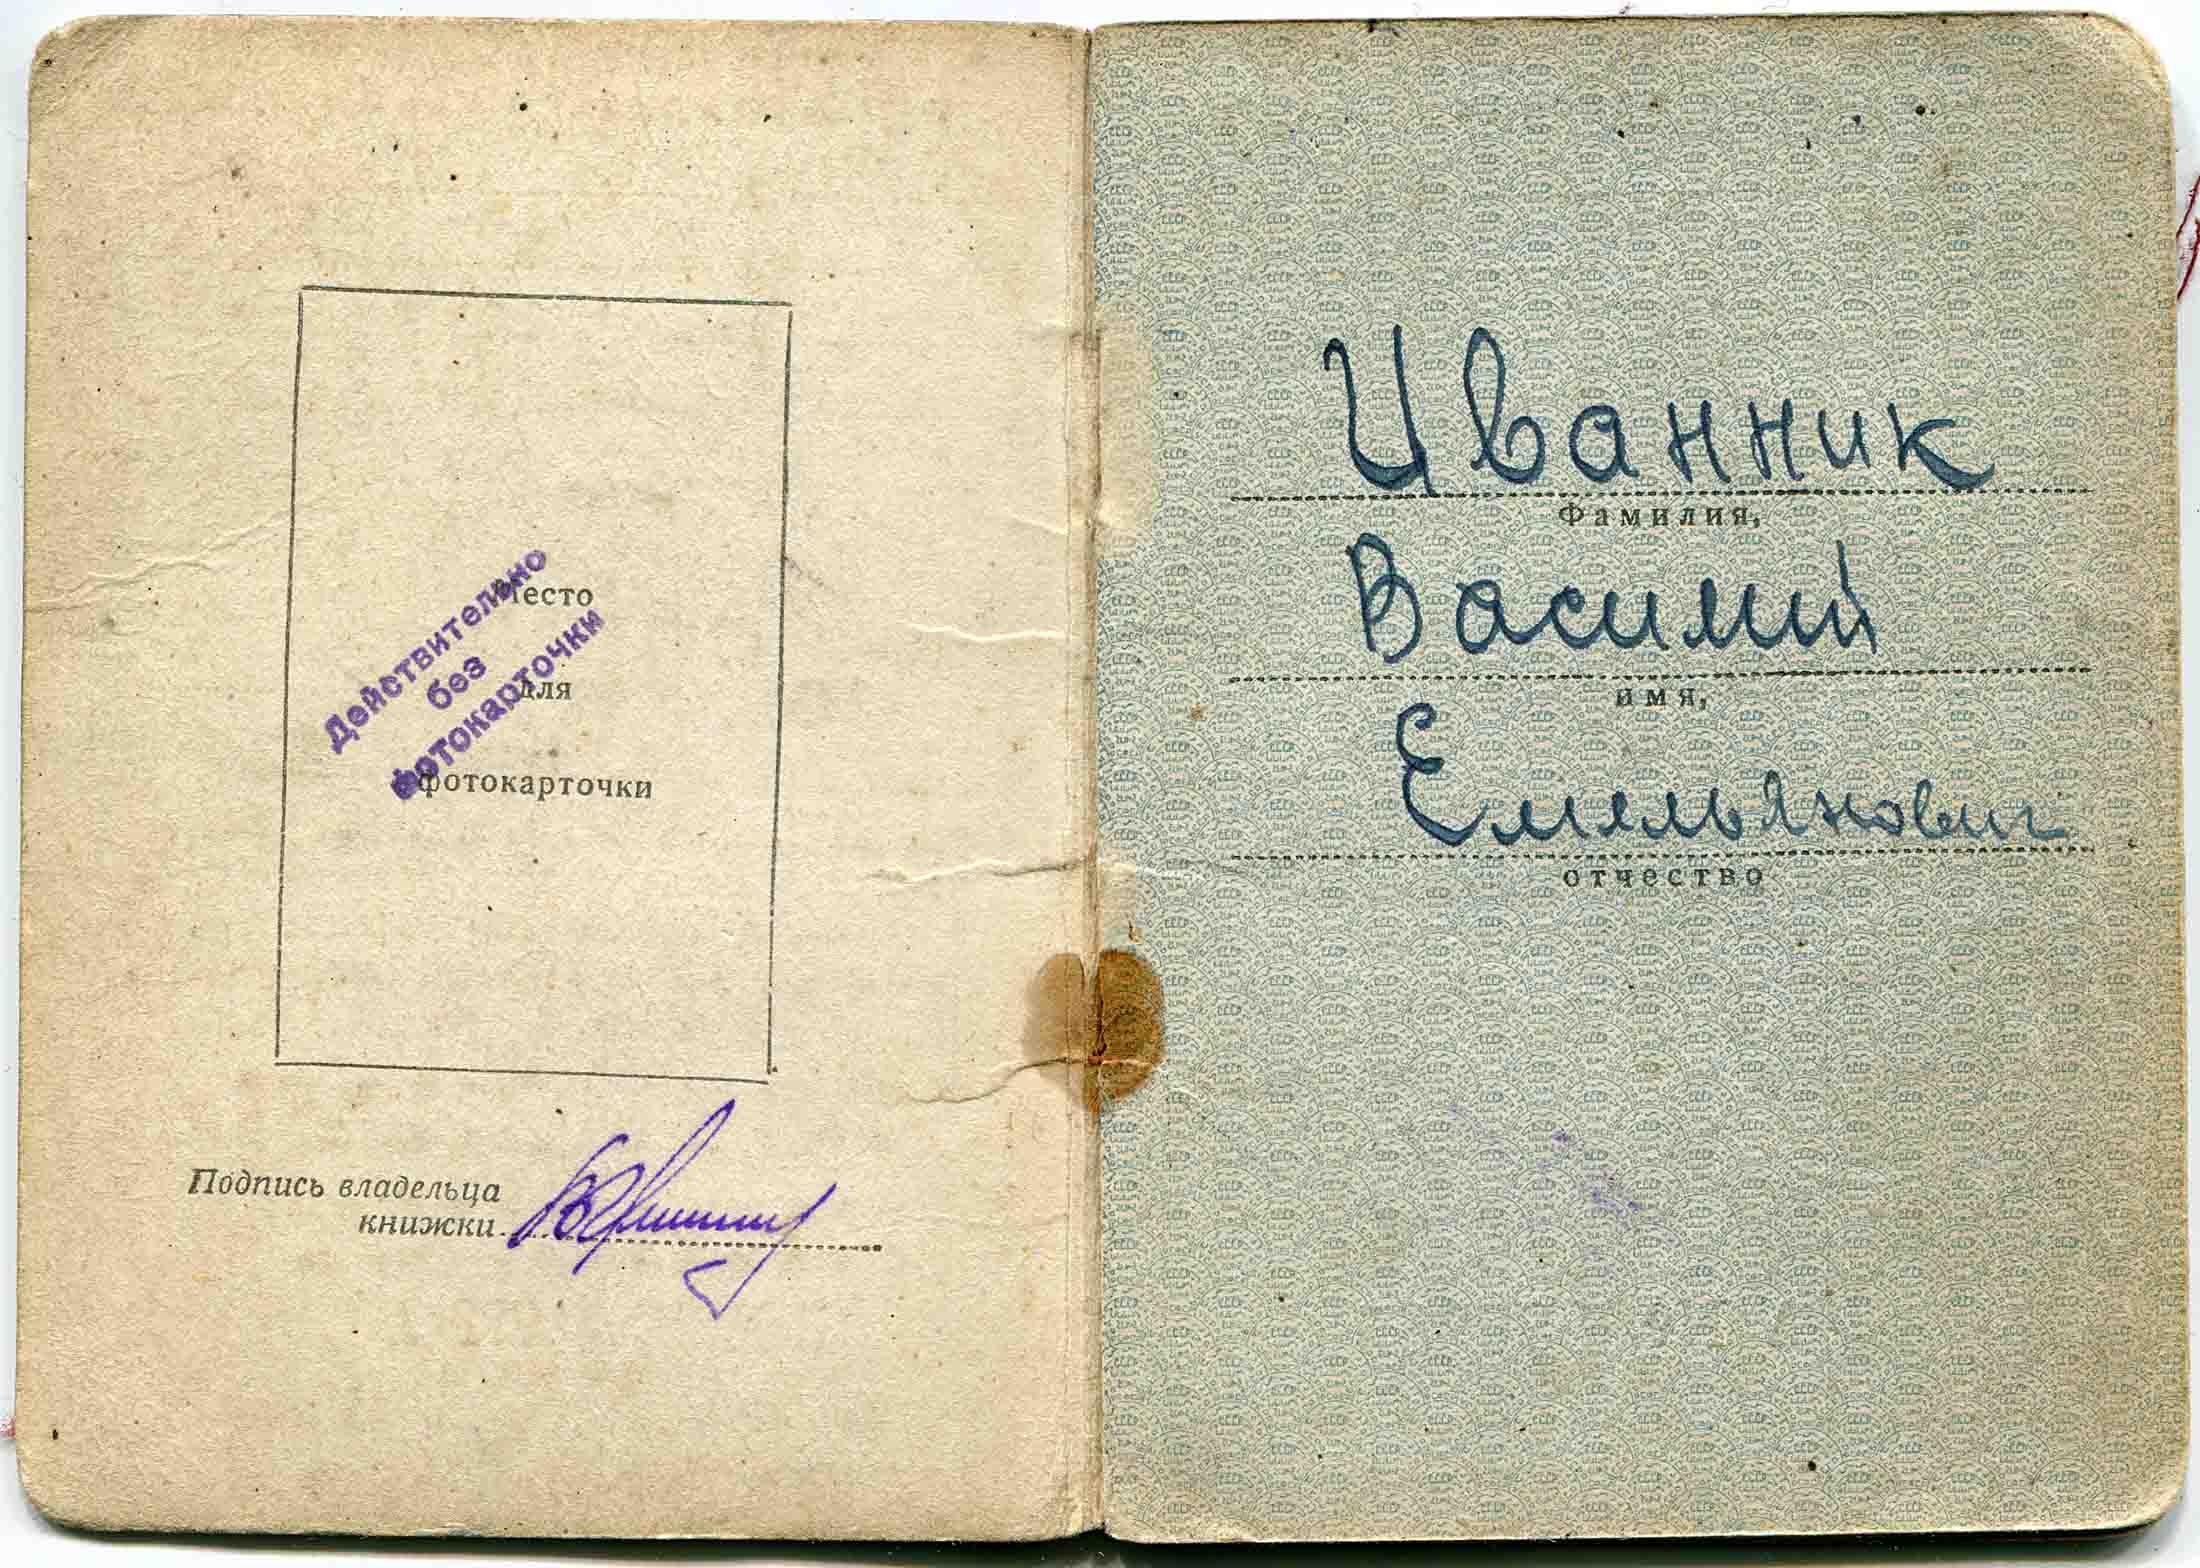 Место
для
фотокарточки
Действительно
без
фотокарточки
Подпись владельца
книжки
Иванник
Фамилия,
Василий
имя,
Емельянович
отчество